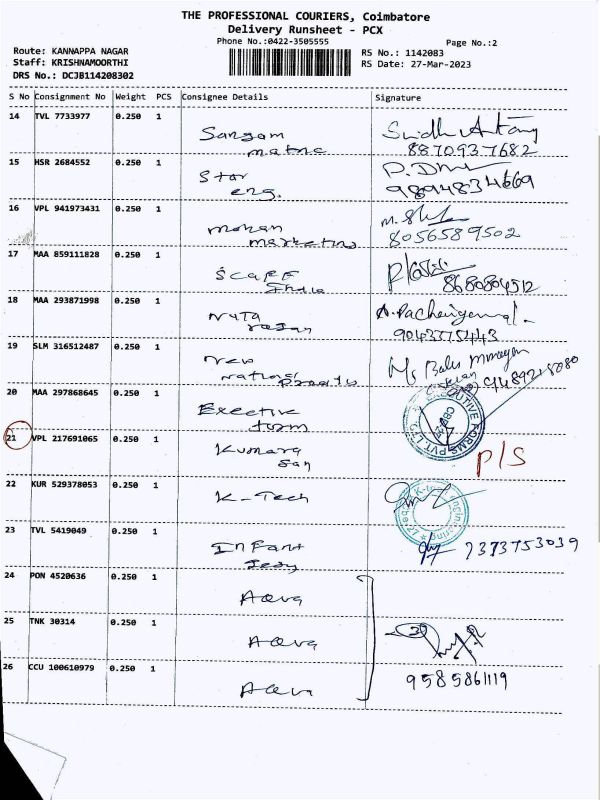 THE PROFESSIONAL COURIERS, Coimbatore
Delivery Runsheet - PCX
Phone No.:0422-3505555
Page No.:2
Route: KANNAPPA NAGAR
Staff: KRISHNAMOORTHI
DRS No.: DCJB114208302
RS No.: 1142083
RS Date: 27-Mar-2023
S No Consignment No Weight PCS Consignee Details Signature
14 TVL 7733977 0.250 1 Sangam
matric
8870937682
15 HSR 2684552 0.250 1 Star
eng.
9894834669
16 VPL 941973431 0.250 1 mohan
marketing
8056589502
17 MAA 859111828 0.250 1 Scaff
India
8680804512
18 MAA 293871998 0.250 1
rajan
9043775443
19 SLM 316512487 0.250 1 New
national
20 MAA 297868645 0.250 1 Exective
form
21 VPL 217691065 0.250 1 Kumara
san P/S
22 KUR 529378053 0.250 1 K-Tech
23 TVL 5419049 0.250 1 Infant
Jesy
7373753039
24 PON 4520636 0.250 1 Aqva
25 TNK 30314 0.250 1 Aqva
26 CCU 100610979 0.250 1 Aqva
9585861119